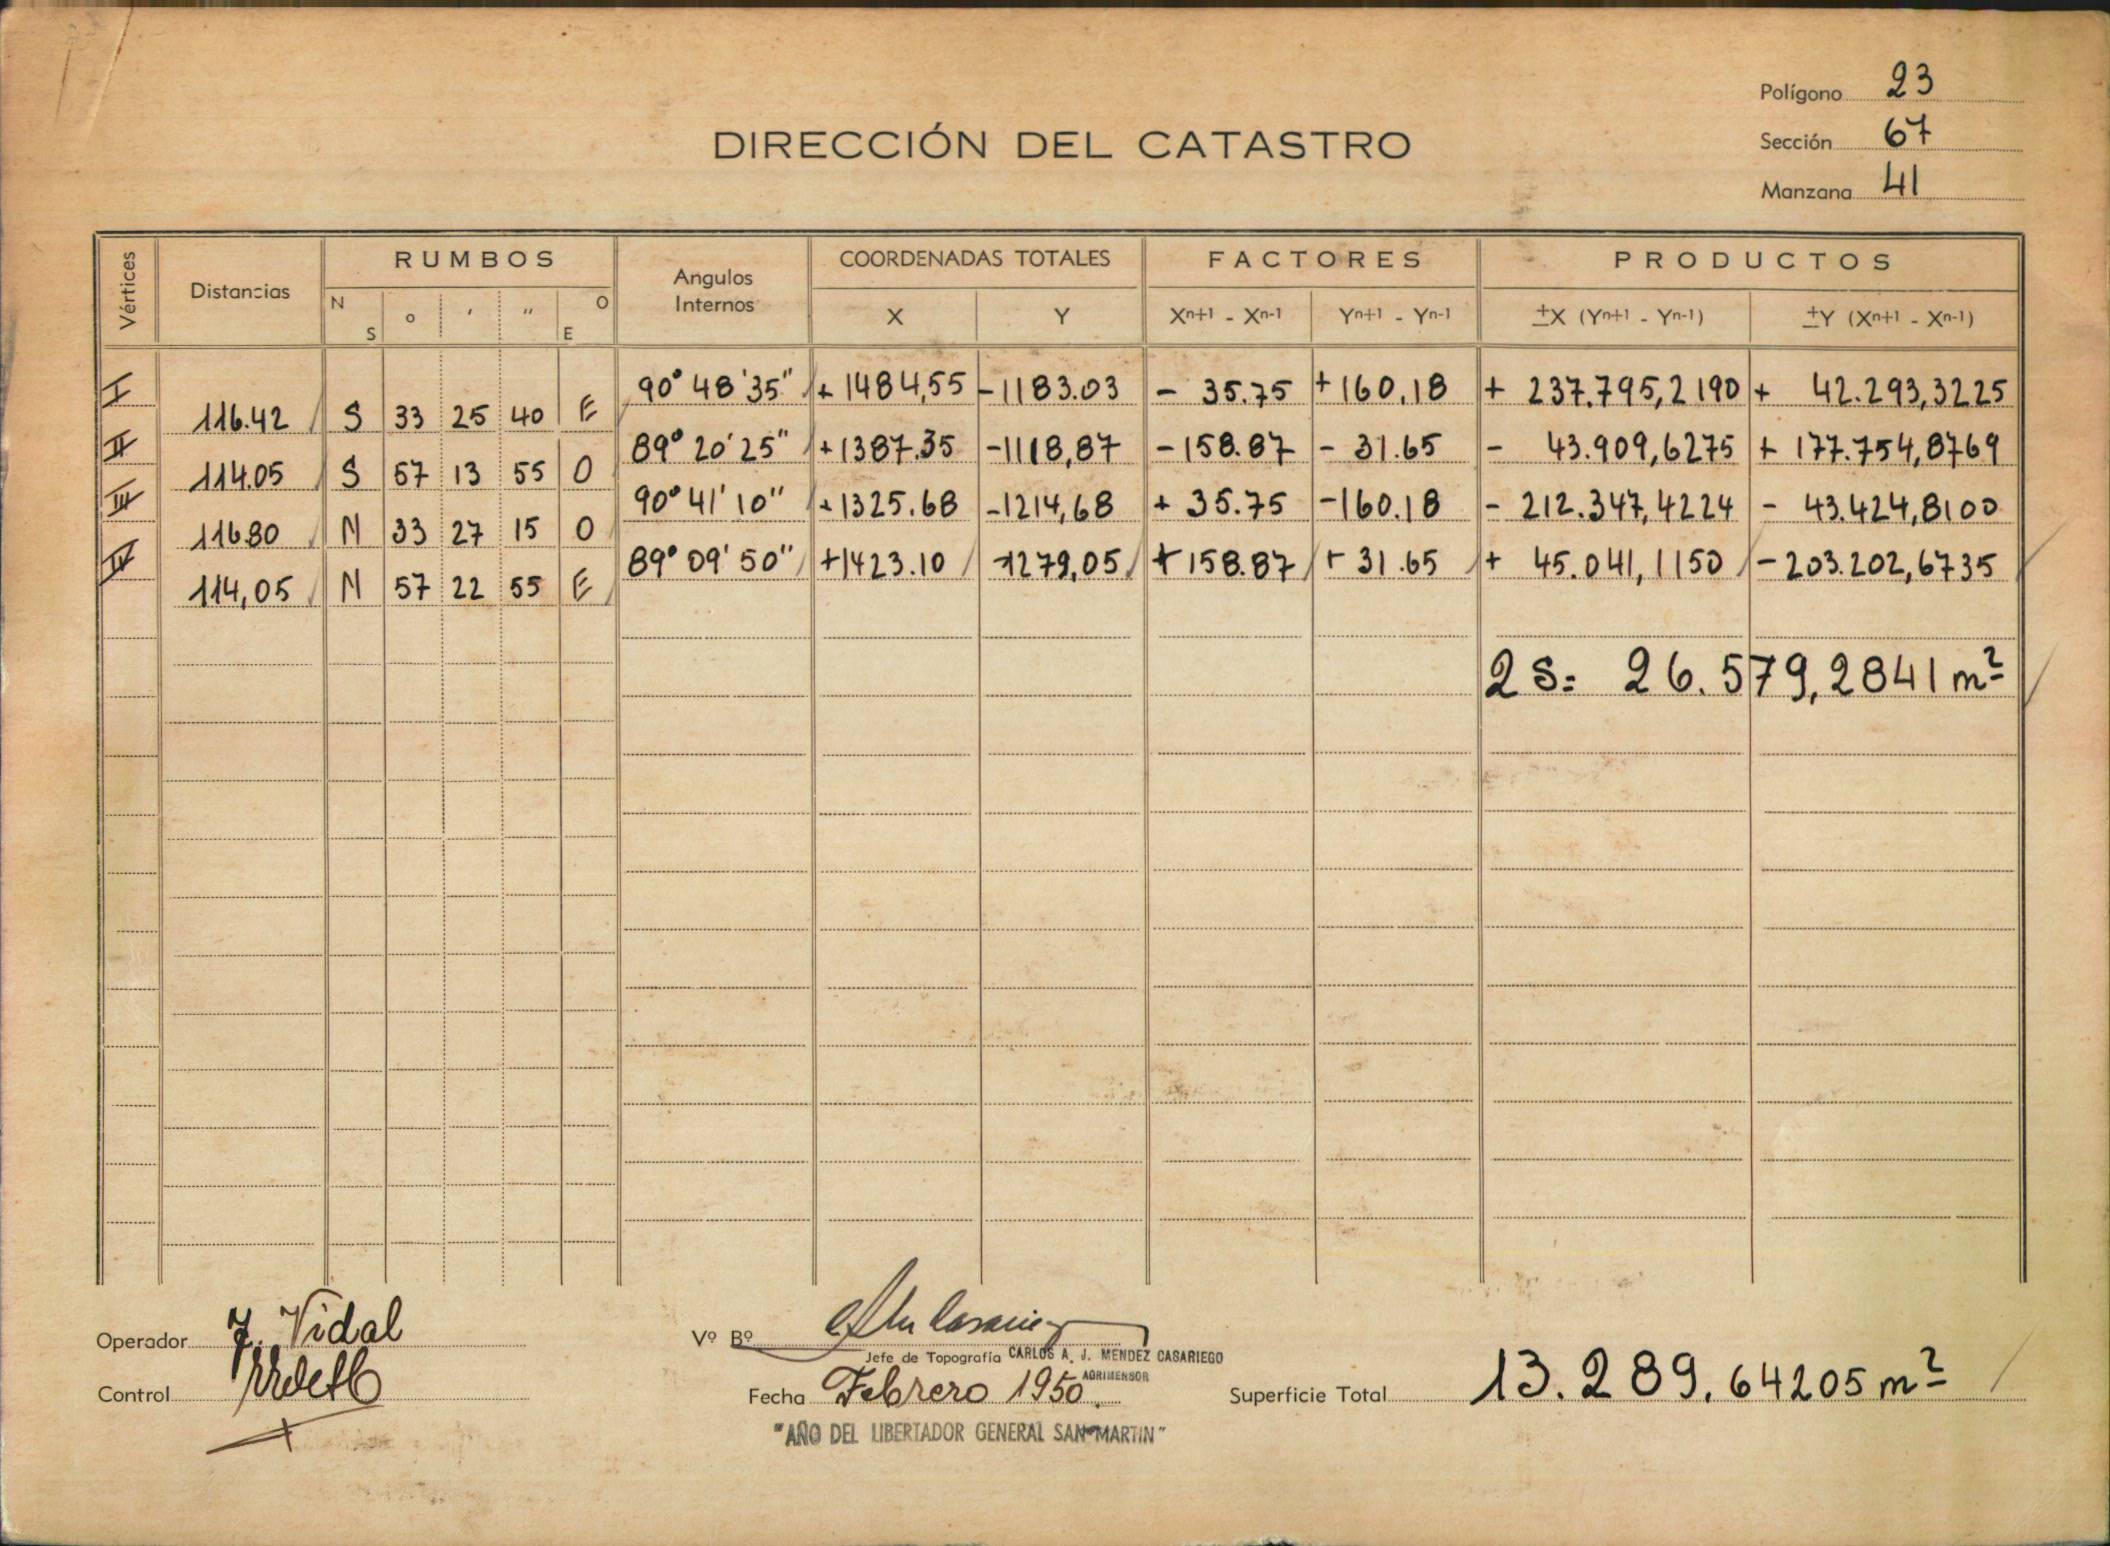 Polígono 23
DIRECCIÓN DEL CATASTRO
Sección 67
Manzana 41
Vértices Distancias RUMBOS Angulos Internos COORDENADAS TOTALES FACTORES PRODUCTOS
N S ° ' " O E X Y Xn+1 - Xn-1 Yn+1 - Yn-1 ±X (Yn+1 - Yn-1) ±Y (Xn+1 - Xn-1)
I 90° 48' 35" + 1484,55 -1183.03 - 35.75 +160.18 + 237.795,2190 + 42.293,3225
116.42 S 33 25 40 E
II 89° 20' 25" +1387.35 -1118,87 -158.87 - 31.65 - 43.909,6275 + 177.754,8769
114.05 S 57 13 55 O
III 90° 41' 10" +1325.68 -1214,68 + 35.75 -160.18 - 212.347,4224 - 43.424,8100
116.80 N 33 27 15 O
IV 89° 09' 50" +1423.10 -1279,05 +158.87 + 31.65 + 45.041,1150 -203.202,6735
114,05 N 57 22 55 E
2S= 26.579,2841 m²
Operador J. Vidal
Vº Bº
Jefe de Topografía CARLOS A. J. MENDEZ CASARIEGO
AGRIMENSOR
Control
Fecha Febrero 1950.
Superficie Total 13.289.64205 m²
"AÑO DEL LIBERTADOR GENERAL SAN MARTIN"